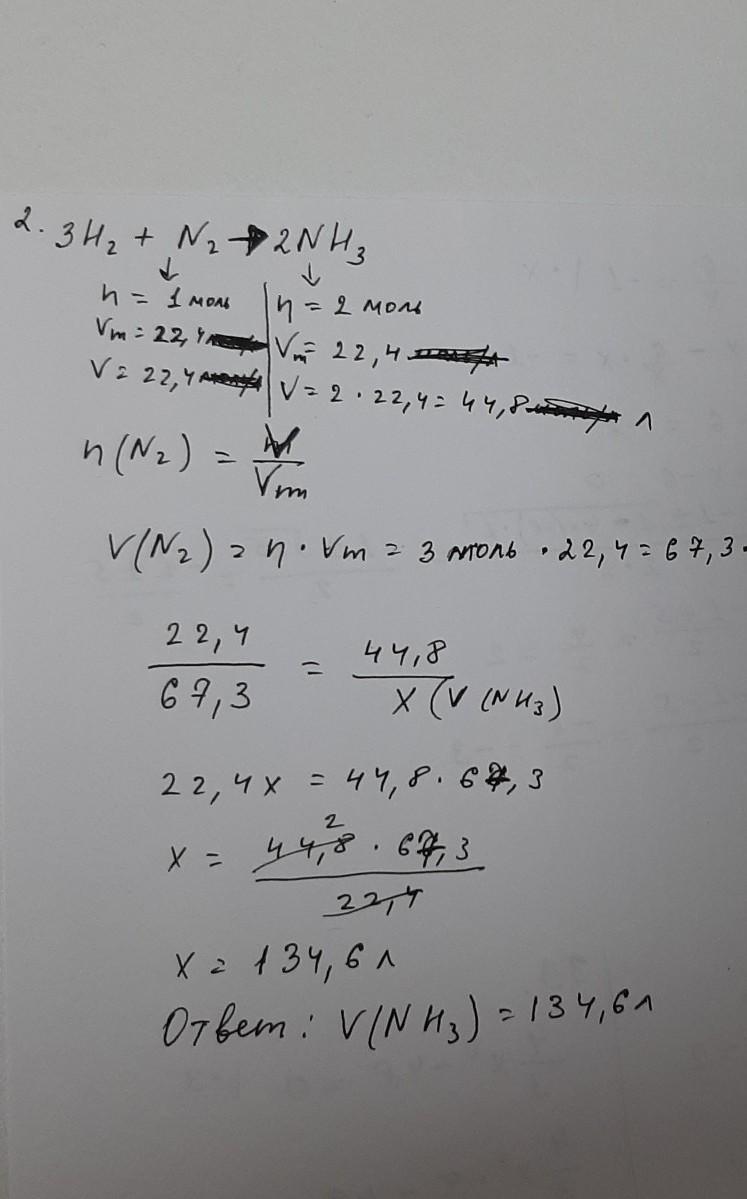 2. 3H₂ + N₂ → 2NH₃
↓ ↓
n = 1 моль | n = 2 моль
Vm = 22,4 | Vm = 22,4
V = 22,4 | V = 2 · 22,4 = 44,8 л
n(N₂) = V/Vm
V(N₂) = n · Vm = 3 моль · 22,4 = 67,3
22,4/67,3 = 44,8/X(V(NH₃)
22,4x = 44,8 · 67,3
x = 44,8 2 · 67,3/22,4
x = 134,6 л
Ответ: V(NH₃) = 134,6 л